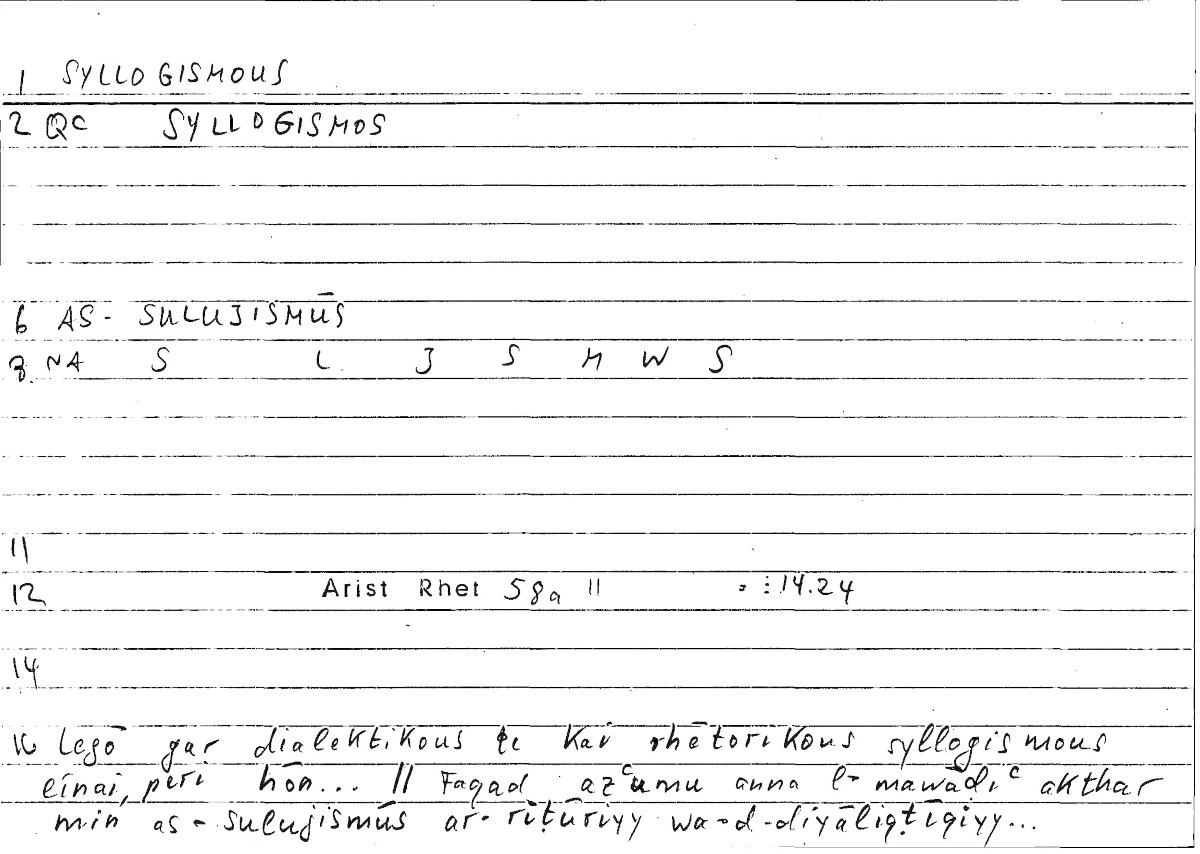 1 SYLLOGISMOUS
2 QC SYLLOGISMOS
6 AS- SULUJISMŪS
8 NA S L J S M W S
11
12 Arist Rhet 58a 11 = : 14.24
14
16 Legō gar dialektikous te kai rhētorikous syllogismous
einai, peri hōn... // Faqad azᶜumu anna l-mawāḍiᶜ akthar
min as-sulujismūs ar-rīṭūriyy wa-d-diyāliqṭīqiyy...